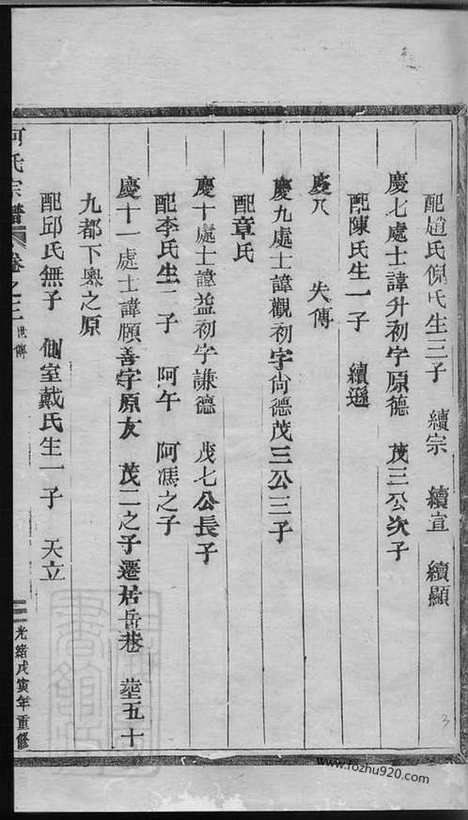 配趙氏倪氏生三子 續宗 續宣 續顯
慶七處士諱升初字原德 茂三公次子
配陳氏生一子 續遜
慶八 失傳
慶九處士諱觀初字尚德茂三公三子
配章氏
慶十處士諱益初字謙德 茂七公長子
配李氏生一子 阿午 阿馮之子
慶十一處士諱願善字原友 茂二之子遷居岳巷 塟五十
九都下奧之原
配邱氏無子 側室戴氏生一子 天立
何氏宗譜 卷之二 世傳
光緒戊寅年重修
3
www.fozhu920.com